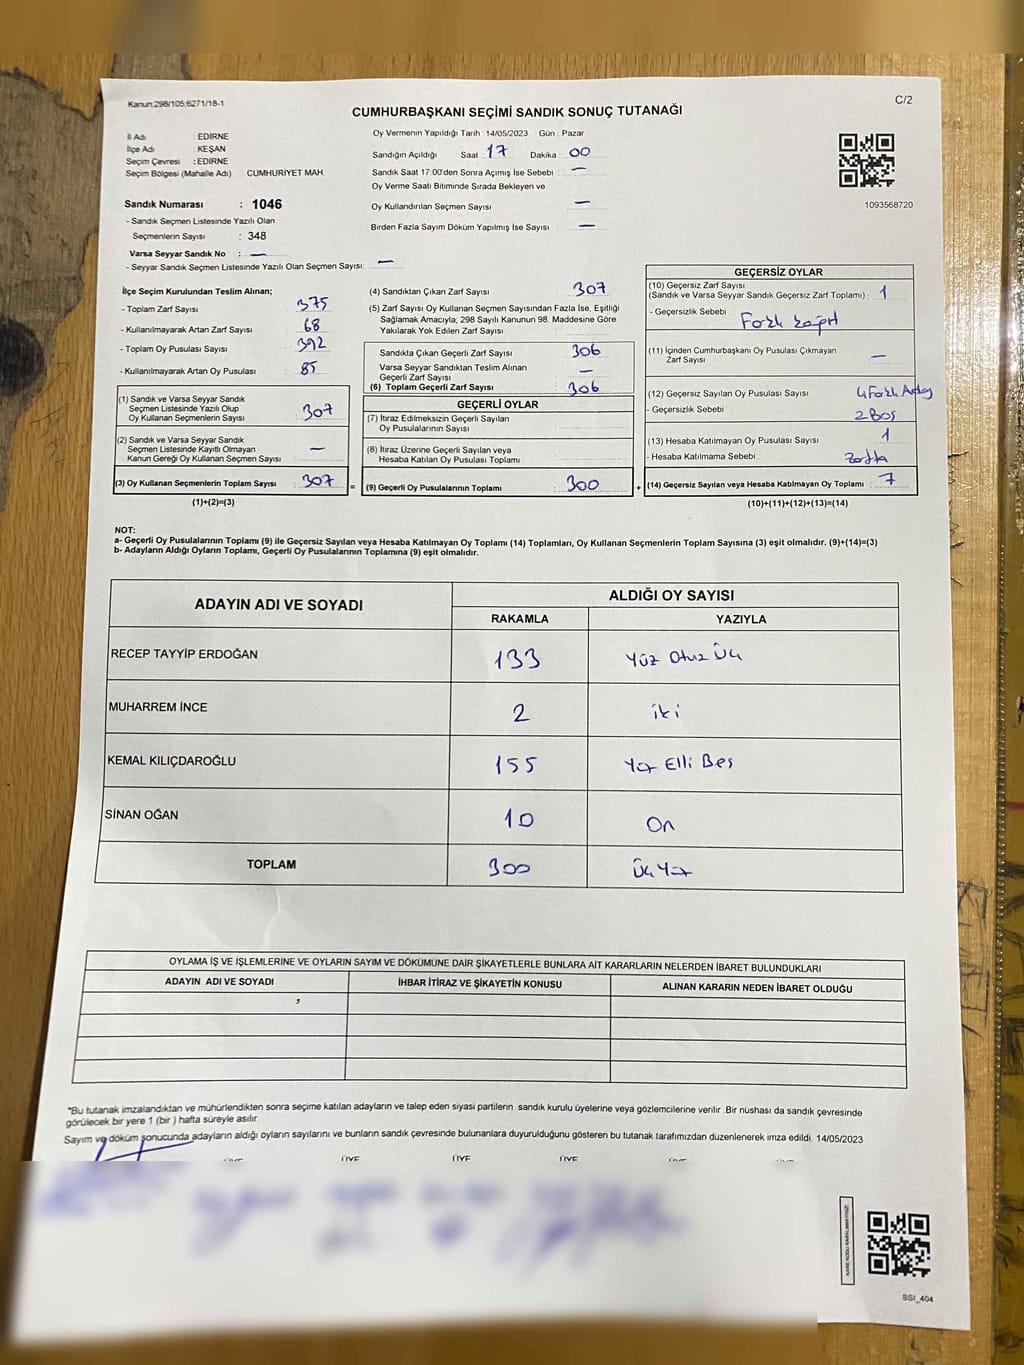 Kanun:298/105;6271/18-1
C/2
CUMHURBAŞKANI SEÇİMİ SANDIK SONUÇ TUTANAĞI
İl Adı : EDİRNE
İlçe Adı : KEŞAN
Seçim Çevresi : EDİRNE
Seçim Bölgesi (Mahalle Adı) : CUMHURİYET MAH.
Sandık Numarası : 1046
- Sandık Seçmen Listesinde Yazılı Olan
Seçmenlerin Sayısı : 348
Varsa Seyyar Sandık No : —
- Seyyar Sandık Seçmen Listesinde Yazılı Olan Seçmen Sayısı: —
Oy Vermenin Yapıldığı Tarih : 14/05/2023 Gün : Pazar
Sandığın Açıldığı Saat : 17 Dakika : 00
Sandık Saat 17:00'den Sonra Açımış İse Sebebi : —
Oy Verme Saati Bitiminde Sırada Bekleyen ve
Oy Kullandırılan Seçmen Sayısı : —
Birden Fazla Sayım Döküm Yapılmış İse Sayısı : —
1093568720
İlçe Seçim Kurulundan Teslim Alınan;
- Toplam Zarf Sayısı : 375
- Kullanılmayarak Artan Zarf Sayısı : 68
- Toplam Oy Pusulası Sayısı : 392
- Kullanılmayarak Artan Oy Pusulası : 85
(1) Sandık ve Varsa Seyyar Sandık
Seçmen Listesinde Yazılı Olup
Oy Kullanan Seçmenlerin Sayısı : 307
(2) Sandık ve Varsa Seyyar Sandık
Seçmen Listesinde Kayıtlı Olmayan
Kanun Gereği Oy Kullanan Seçmen Sayısı : —
(3) Oy Kullanan Seçmenlerin Toplam Sayısı : 307 =
(1)+(2)=(3)
(4) Sandıktan Çıkan Zarf Sayısı : 307
(5) Zarf Sayısı Oy Kullanan Seçmen Sayısından Fazla İse, Eşitliği
Sağlamak Amacıyla; 298 Sayılı Kanunun 98. Maddesine Göre
Yakılarak Yok Edilen Zarf Sayısı :
Sandıkta Çıkan Geçerli Zarf Sayısı : 306
Varsa Seyyar Sandıktan Teslim Alınan
Geçerli Zarf Sayısı : —
(6) Toplam Geçerli Zarf Sayısı : 306
GEÇERLİ OYLAR
(7) İtiraz Edilmeksizin Geçerli Sayılan
Oy Pusulalarının Sayısı :
(8) İtiraz Üzerine Geçerli Sayılan veya
Hesaba Katılan Oy Pusulası Toplamı :
(9) Geçerli Oy Pusulalarının Toplamı : 300 +
GEÇERSİZ OYLAR
(10) Geçersiz Zarf Sayısı
(Sandık ve Varsa Seyyar Sandık Geçersiz Zarf Toplamı) : 1
- Geçersizlik Sebebi :
(11) İçinden Cumhurbaşkanı Oy Pusulası Çıkmayan
Zarf Sayısı : —
(12) Geçersiz Sayılan Oy Pusulası Sayısı : 4
- Geçersizlik Sebebi : 2 Boş
(13) Hesaba Katılmayan Oy Pusulası Sayısı : 1
- Hesaba Katılmama Sebebi :
(14) Geçersiz Sayılan veya Hesaba Katılmayan Oy Toplamı : 7
(10)+(11)+(12)+(13)=(14)
NOT:
a- Geçerli Oy Pusulalarının Toplamı (9) ile Geçersiz Sayılan veya Hesaba Katılmayan Oy Toplamı (14) Toplamları, Oy Kullanan Seçmenlerin Toplam Sayısına (3) eşit olmalıdır. (9)+(14)=(3)
b- Adayların Aldığı Oyların Toplamı, Geçerli Oy Pusulalarının Toplamına (9) eşit olmalıdır.
ADAYIN ADI VE SOYADI
ALDIĞI OY SAYISI
RAKAMLA YAZIYLA
RECEP TAYYİP ERDOĞAN 133 Yüz Otuz Üç
MUHARREM İNCE 2 iki
KEMAL KILIÇDAROĞLU 155 Yüz Elli Beş
SİNAN OĞAN 10 On
TOPLAM 300 Üç Yüz
OYLAMA İŞ VE İŞLEMLERİNE VE OYLARIN SAYIM VE DÖKÜMÜNE DAİR ŞİKAYETLERLE BUNLARA AİT KARARLARIN NELERDEN İBARET BULUNDUKLARI
ADAYIN ADI VE SOYADI İHBAR İTİRAZ VE ŞİKAYETİN KONUSU ALINAN KARARIN NEDEN İBARET OLDUĞU
*Bu tutanak imzalandıktan ve mühürlendikten sonra seçime katılan adayların ve talep eden siyasi partilerin sandık kurulu üyelerine veya gözlemcilerine verilir. Bir nüshası da sandık çevresinde
görülecek bir yere 1 (bir ) hafta süreyle asılır.
Sayım ve döküm sonucunda adayların aldığı oyların sayılarını ve bunların sandık çevresinde bulunanlara duyurulduğunu gösteren bu tutanak tarafımızdan düzenlenerek imza edildi. 14/05/2023
ÜYE ÜYE ÜYE
SSI_404